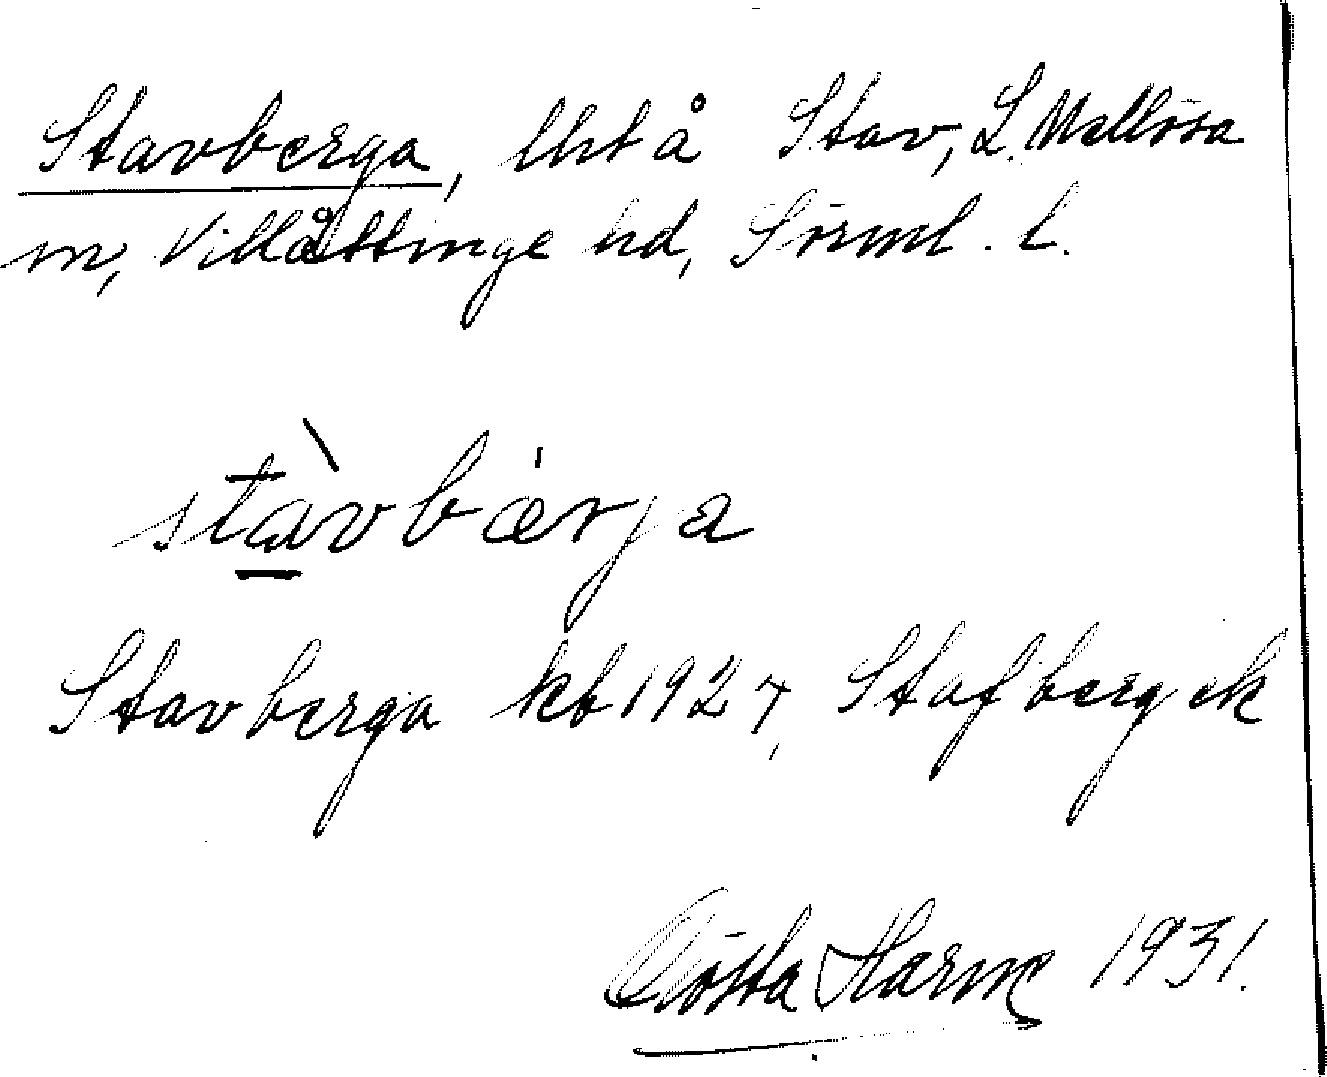 Stavberga, lht å Stav, L. Mellösa
sn, Villåttinge hd, Sörml. l.
stàvbärja
Stavberga kb 1927, Stafberg ek
Gösta Harme 1931.